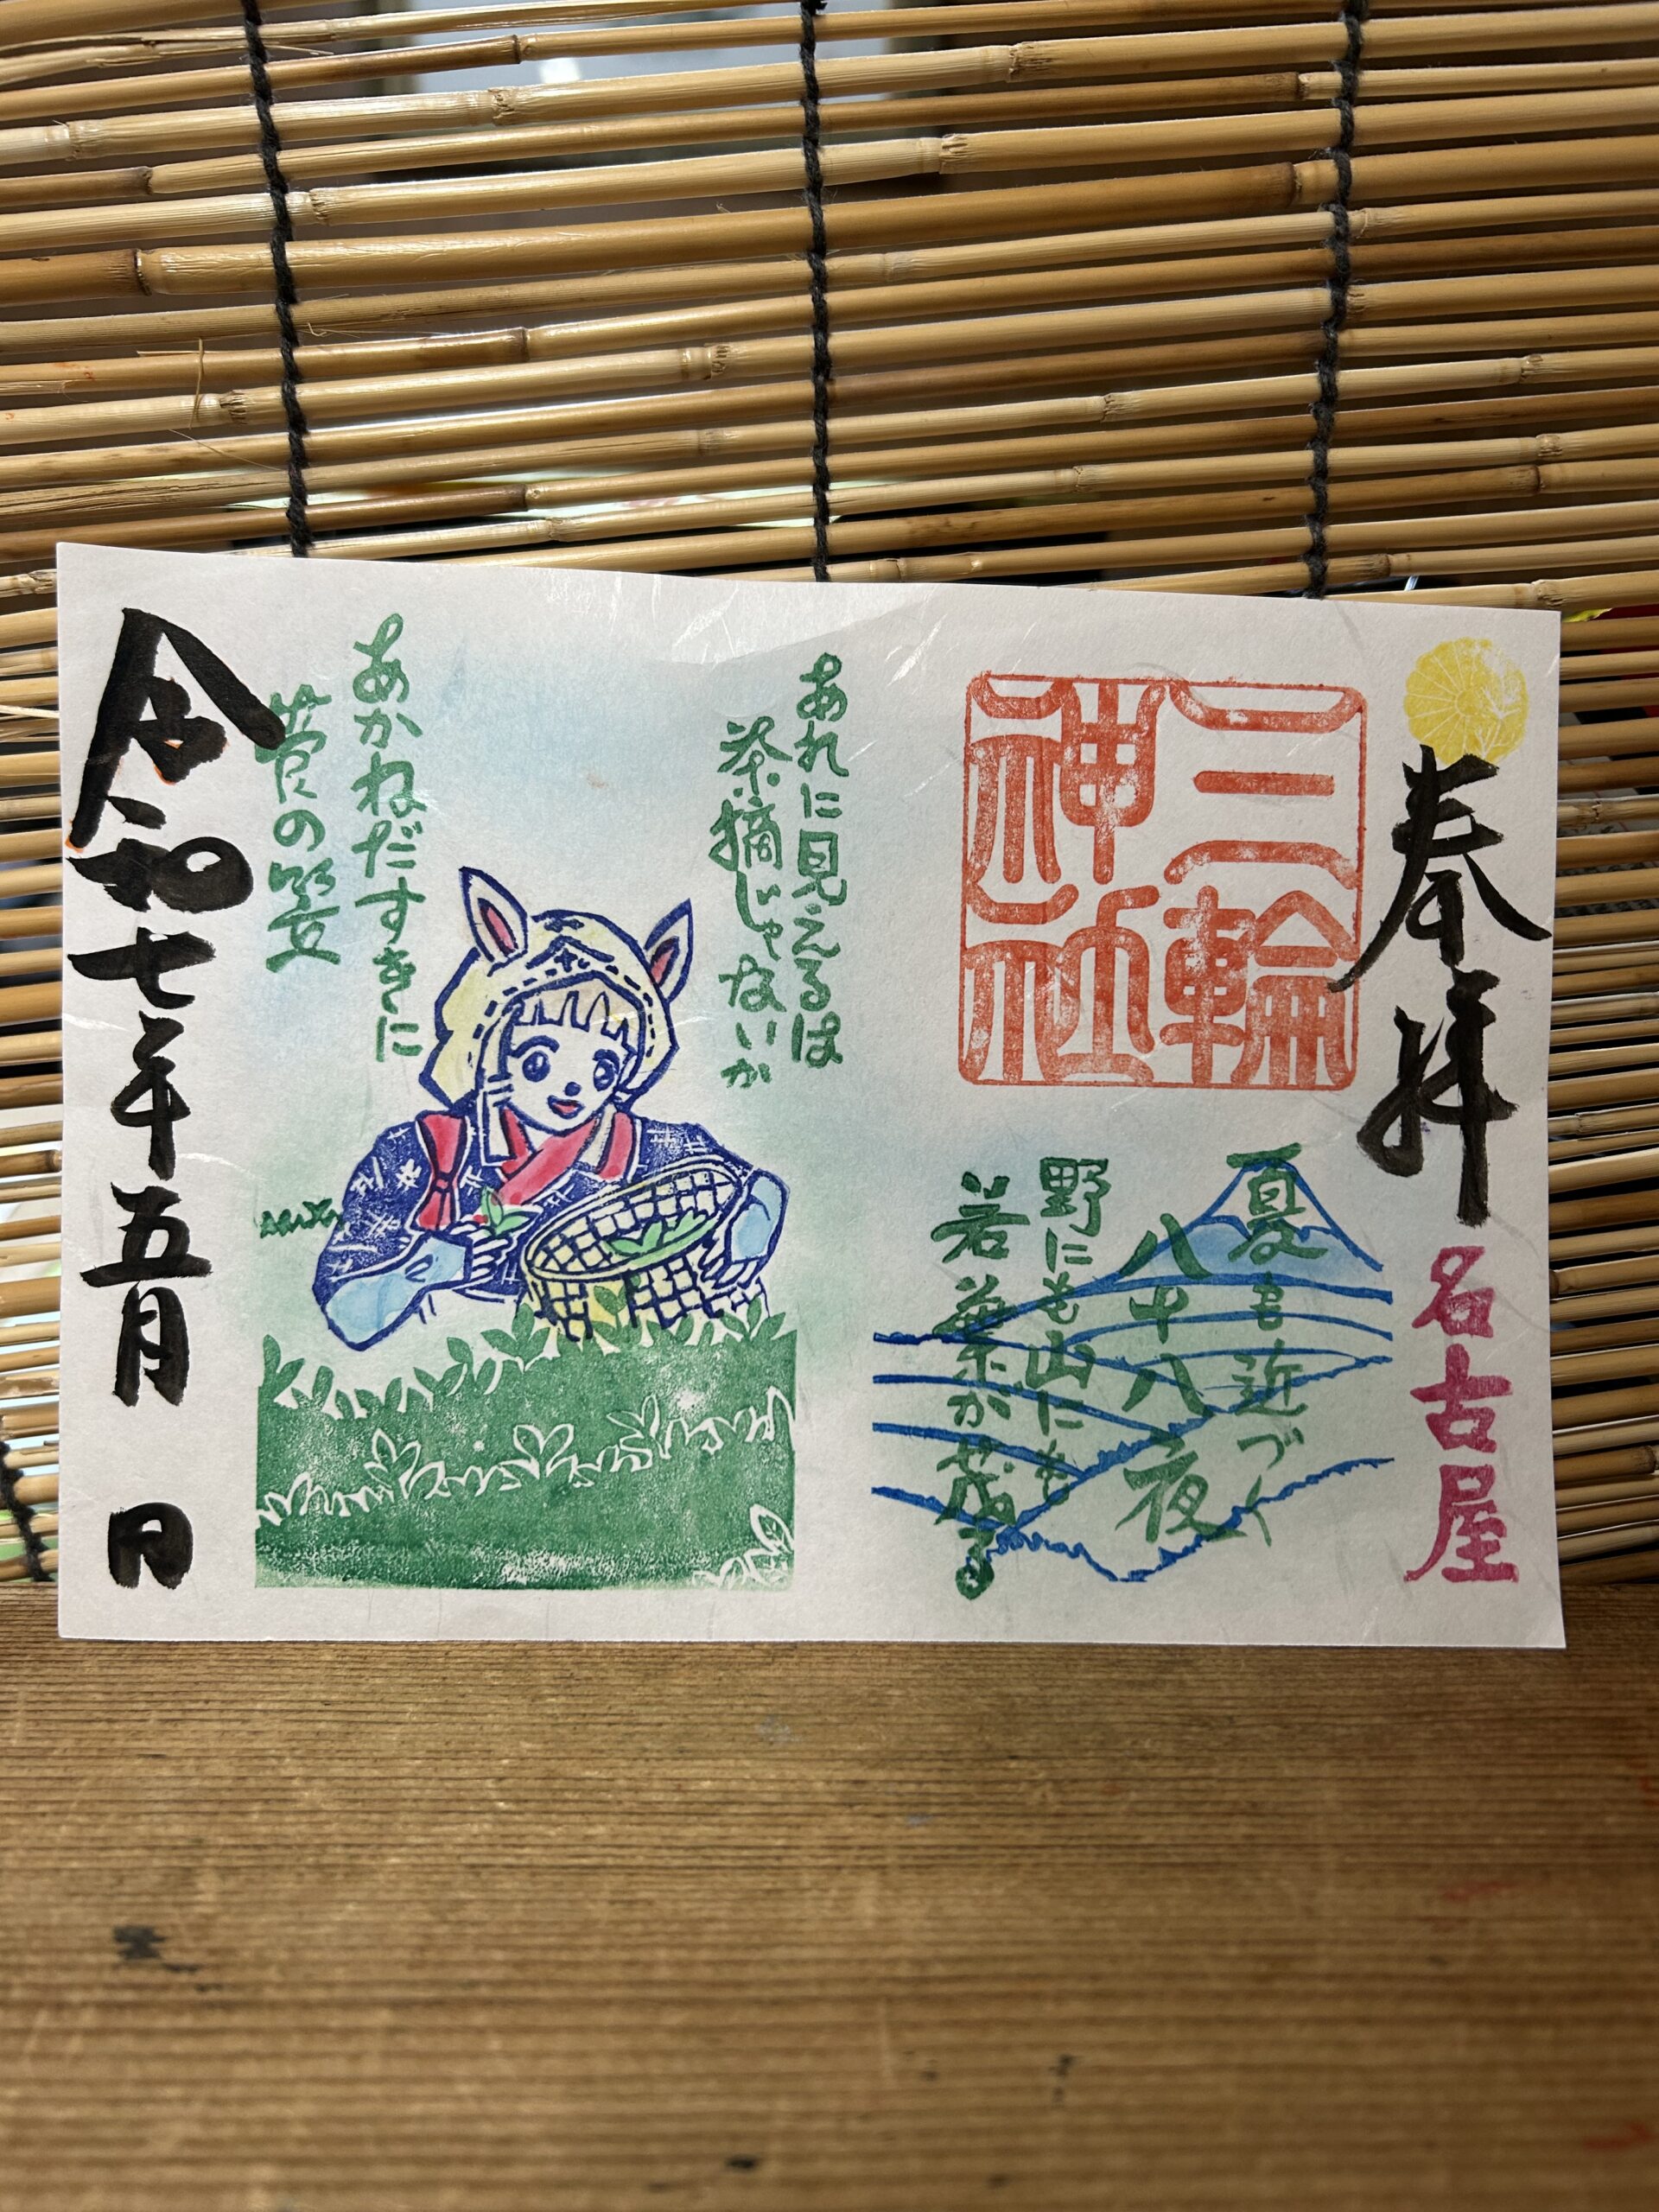 奉拝
名古屋
三輪
神社
夏も近づく
八十八夜
野にも山にも
若葉が茂る
あれに見えるは
茶摘じゃないか
あかねだすきに
菅の笠
令和七年五月 日